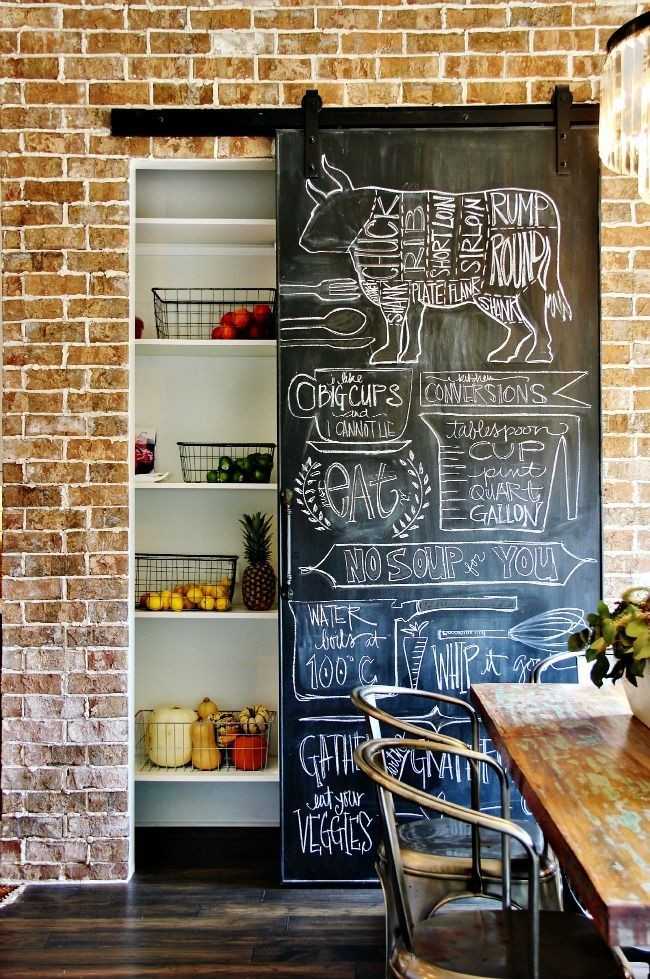 CHUCK
RIB
SHORT LOIN
SIRLOIN
RUMP
ROUND
SHANK
PLATE
FLANK
SHANK
i like
BIG CUPS
and
I CANNOT LIE
kitchen
CONVERSIONS
tablespoon
CUP
pint
QUART
GALLON
eat
NO SOUP for YOU
WATER
boils at
100°C
WHIP it
GATHER
with
GRATEFUL
eat your
VEGGIES